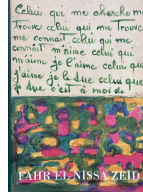 Celui qui me cherche me
trouve celui qui me trouve
me connait celui qui me
connait m'aime celui qui
m'aime je l'aime celui que
j'aime je le tue celui que
je tue c'est à moi de
FAHR EL-NISSA ZEID